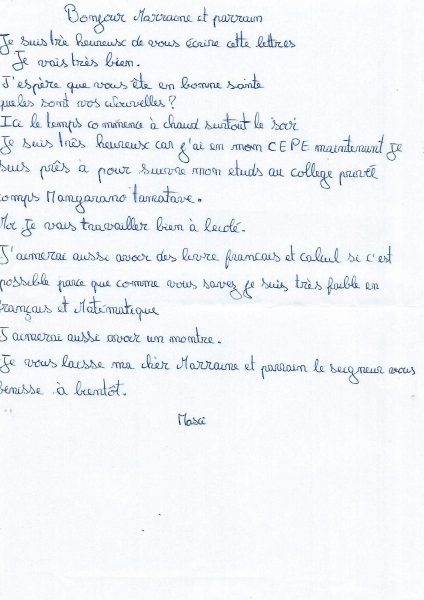 Bonjour Marraine et parrain
Je suis trè heureux de vous écrire cette lettres
Je vais très bien.
J'espère que vous ête en bonne sante
queles sont vos Nouvelles ?
Ici le temps commence à chaud surtout le soir
Je suis très heureux car j'ai en mom CEPE maintenent Je
suis près à pour suivre mon etuds au college privée
comps Mangarano tamatave.
Moi Je vais travailler bien à
J'aimerai aussi avoir des livre francais et calcul si c'est
possible parce que comme vous savez je suis très faible en
français et Matématique
J'aimerai aussi avoir un montre.
Je vous laisse ma chier Marraine et parrain le seigneur vous
benisse à bientôt.